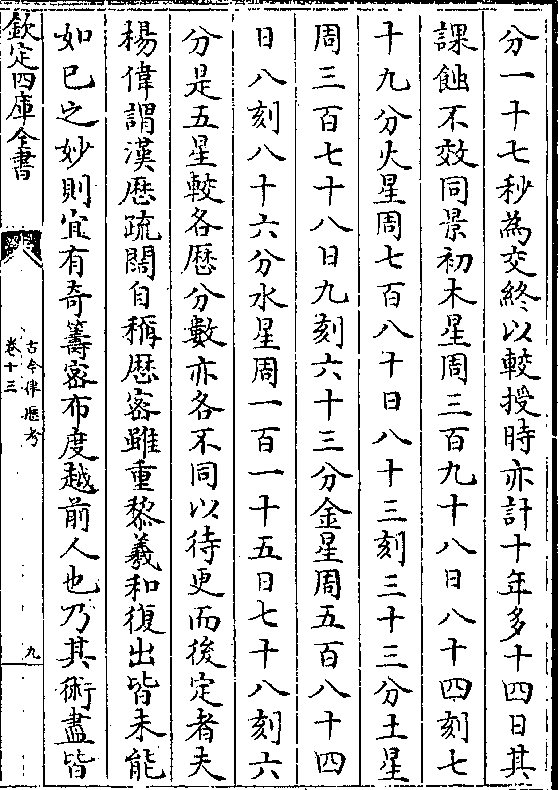 分一十七秒為交終以較授時亦計十年多十四日其
課蝕不效同景初木星周三百九十八日八十四刻七
十九分火星周七百八十日八十三刻三十三分土星
周三百七十八日九刻六十三分金星周五百八十四
日八刻八十六分水星周一百一十五日七十八刻六
分是五星較各厯分數亦各不同以待更而後定者夫
楊偉謂漢厯疏闊自稱厯宻雖重黎羲和復出皆未能
如已之妙則宜有奇籌宻布度越前人也乃其術盡皆
欽定四庫全書
古今律厯考
卷十三
九